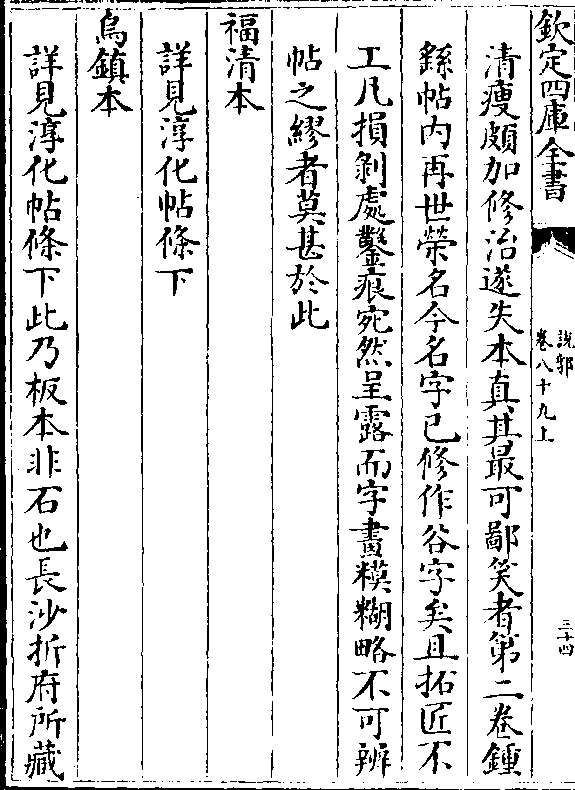 欽定四庫全書
說郛
卷八十九上
三十四
清瘦頗加修治遂失本真其最可鄙笑者第二卷鍾
繇帖内再世榮名今名字已修作谷字矣且拓匠不
工凡損剝處鑿痕宛然呈露而字畫糢糊略不可辨
帖之繆者莫甚於此
福清本
詳見淳化帖條下
烏鎮本
詳見淳化帖條下此乃板本非石也長沙折府所藏